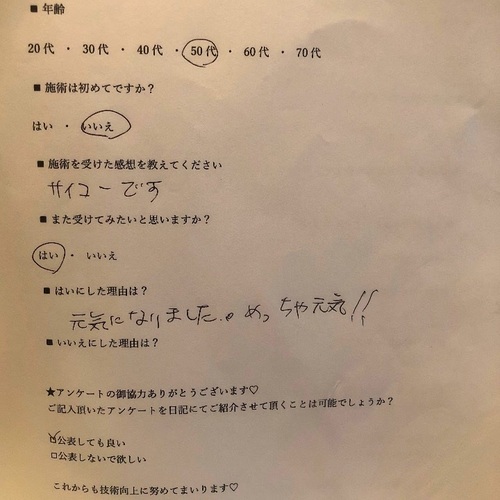 ■ 年齢
20代 ・ 30代 ・ 40代 ・ 50代 ・ 60代 ・ 70代
■ 施術は初めてですか？
はい ・ いいえ
■ 施術を受けた感想を教えてください
サイコーです
■ また受けてみたいと思いますか？
はい ・ いいえ
■ はいにした理由は？
元気になりました。めっちゃ元気!!
■ いいえにした理由は？
★アンケートの御協力ありがとうございます♡
ご記入頂いたアンケートを日記にてご紹介させて頂くことは可能でしょうか？
☑公表しても良い
□公表しないで欲しい
これからも技術向上に努めてまいります♡